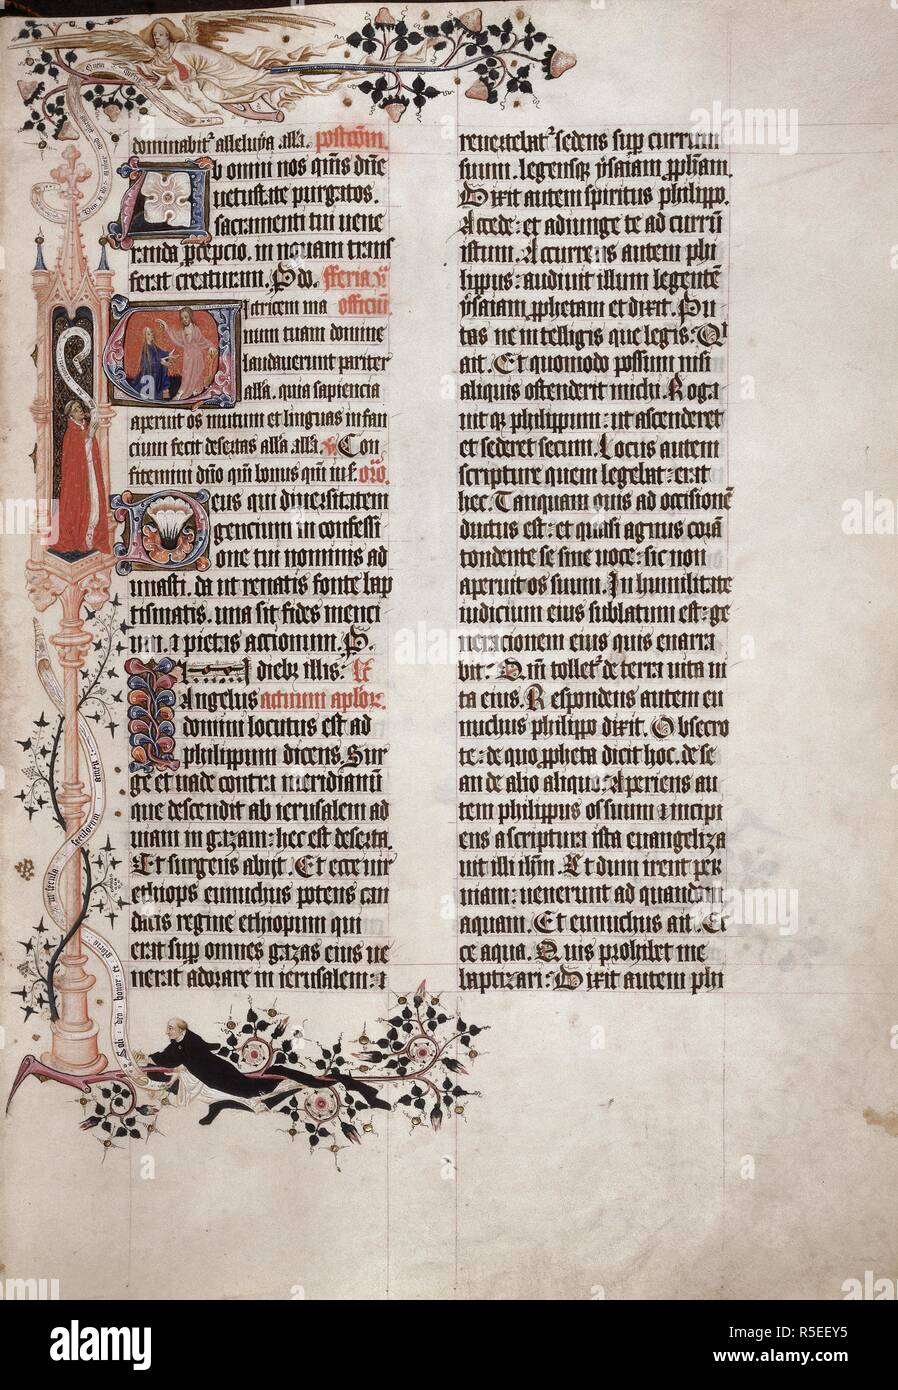 dominabit² alleluia alla. postcōm
Ab omni nos quīs dn̄e
uetustate purgatos.
sacramenti tui uene
randa ꝑcepcio. in nouam trans
ferat creaturam. P dō. fferia v
Victricem ma officiū
num tuam domine
laudauerunt pariter
alla. quia sapiencia
aperuit os mutum et linguas infan
cium fecit desertas alla alla. v Con
fitemini dn̄o qm̄ bonus qm̄ in s̄. orō.
Deus qui diuersitatem
gencium in confessi
one tui nominis ad
unasti. da ut renatis fonte bap
tismatis. una sit fides menci
um. ⁊ pietas accionum. P.
In dieb² illis:
Angelus actuum aplōꝝ.
domini locutus est ad
philippum dicens. Sur
ge et uade contra meridianū
que descendit ab ierusalem ad
uiam in gazam: hec est deserta.
Et surgens abijt. Et ecce uir
ethiops eunuchus potens can
dacis regine ethiopum qui
erat suꝑ omnes gazas eius ue
nerat adorare in ierusalem: ⁊
reuertebat² sedens suꝑ currum
suum. legensqꝫ ysaiam ꝓphām.
Dixit autem spiritus philippo.
Accede: et adiunge te ad currū
istum. Accurrens autem phi
lippus: audiuit illum legentē
ysaiam ꝓphetam et dixit. Pu
tas ne intelligis que legis: Qi
ait. Et quomodo possum nisi
aliquis ostenderit michi. Roga
uit qꝫ philippum: ut ascenderet
et sederet secum. Locus autem
scripture quem legebat: erat
hec. Tanquam ouis ad occisionē
ductus est: et quasi agnus corā
tondente se sine uoce: sic non
aperuit os suum. In humilitate
iudicium eius sublatum est: ge
neracionem eius quis enarra
bit: Qm̄ tollet² de terra uita ui
ta eius. Respondens autem eu
nuchus philippo dixit. Obsecro
te: de quo ꝓpheta dicit hoc. de se
an de alio aliquo: Aperiens au
tem philippus os suum ⁊ incipi
ens a scriptura ista euangeliza
uit illi ihm̄. Et dum irent per
uiam: uenerunt ad quandam
aquam. Et eunuchus ait. Ec
ce aqua. Quis prohibet me
baptizari: Dixit autem phi
in secula seculorum amen
Soli deo honor et gloria
alamy
Image ID: R5EEY5
www.alamy.com